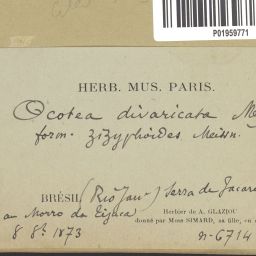 P01959771
HERB. MUS. PARIS.
Ocotea divaricata Me
form. zizyphoides Meissn.
BRÉSIL (Rio Jan.) Serra de Jacare
au Morro da Tijuca Herbier de A. GLAZIOU
donné par Mme SIMARD, sa fille, en
8 8bre 1873 n-6714